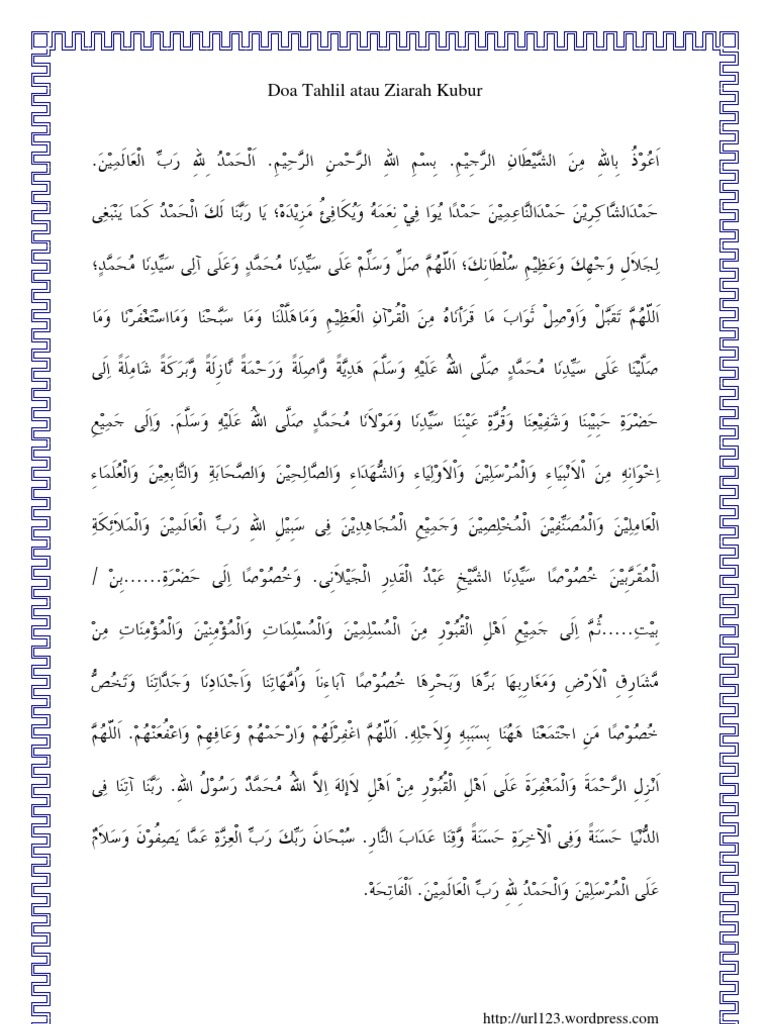 Doa Tahlil atau Ziarah Kubur
اَعُوْذُ بِاللهِ مِنَ الشَّيْطَانِ الرَّجِيْمِ. بِسْمِ اللهِ الرَّحْمنِ الرَّحِيْمِ. اَلْحَمْدُ لِلهِ رَبِّ الْعَالَمِيْنَ.
حَمْدَالشَّاكِرِيْنَ حَمْدَالنَّاعِمِيْنَ حَمْدًا يُوَا فِيْ نِعَمَهُ وَيُكَافِئُ مَزِيْدَهْ؛ يَا رَبَّنَا لَكَ الْحَمْدُ كَمَا يَنْبَغِى
لِجَلَالِ وَجْهِكَ وَعَظِيْمِ سُلْطَانِكَ؛ اَللّهُمَّ صَلِّ وَسَلِّمْ عَلَى سَيِّدِنَا مُحَمَّدٍ وَعَلَى آلِى سَيِّدِنَا مُحَمَّدٍ؛
اَللّهُمَّ تَقَبَّلْ وَاَوْصِلْ ثَوَابَ مَا قَرَأْنَاهُ مِنَ الْقُرْآنِ الْعَظِيْمِ وَمَاهَلَّلْنَا وَمَا سَبَّحْنَا وَمَااسْتَغْفَرْنَا وَمَا
صَلَّيْنَا عَلَى سَيِّدِنَا مُحَمَّدٍ صَلَّى اللهُ عَلَيْهِ وَسَلَّمَ هَدِيَّةً وَّاصِلَةً وَرَحْمَةً نَّازِلَةً وَّبَرَكَةً شَامِلَةً اِلَى
حَضْرَةِ حَبِيْبِنَا وَشَفِيْعِنَا وَقُرَّةِ عَيْنِنَا سَيِّدِنَا وَمَوْلَانَا مُحَمَّدٍ صَلَّى اللهُ عَلَيْهِ وَسَلَّمَ. وَاِلَى جَمِيْعِ
اِخْوَانِهِ مِنَ الْاَنْبِيَاءِ وَالْمُرْسَلِيْنَ وَالْاَوْلِيَاءِ وَالشُّهَدَاءِ وَالصَّالِحِيْنَ وَالصَّحَابَةِ وَالتَّابِعِيْنَ وَالْعُلَمَاءِ
الْعَامِلِيْنَ وَالْمُصَنِّفِيْنَ الْمُخْلِصِيْنَ وَجَمِيْعِ الْمُجَاهِدِيْنَ فِى سَبِيْلِ اللهِ رَبِّ الْعَالَمِيْنَ وَالْمَلَائِكَةِ
الْمُقَرَّبِيْنَ خُصُوْصًا سَيِّدِنَا الشَّيْخِ عَبْدُ الْقَدِرِ الْجَيْلَانِى. وَخُصُوْصًا اِلَى حَضْرَةِ......بِنْ /
بِيْتِ.....ثُمَّ اِلَى جَمِيْعِ اَهْلِ الْقُبُوْرِ مِنَ الْمُسْلِمِيْنَ وَالْمُسْلِمَاتِ وَالْمُؤْمِنِيْنَ وَالْمُؤْمِنَاتِ مِنْ
مَّشَارِقِ الْاَرْضِ وَمَغَارِبِهَا بَرِّهَا وَبَحْرِهَا خُصُوْصًا آبَاءِنَا وَاُمَّهَاتِنَا وَاَجْدَادِنَا وَجَدَّاتِنَا وَنَخُصُّ
خُصُوْصًا مَنِ اجْتَمَعْنَا هَهُنَا بِسَبَبِهِ وِلاَجْلِهِ. اَللّهُمَّ اغْفِرْلَهُمْ وَارْحَمْهُمْ وَعَافِهِمْ وَاعْفُعَنْهُمْ. اَللّهُمَّ
اَنْزِلِ الرَّحْمَةَ وَالْمَغْفِرَةَ عَلَى اَهْلِ الْقُبُوْرِ مِنْ اَهْلِ لاَإِلهَ اِلاَّ اللهُ مُحَمَّدٌ رَسُوْلُ اللهِ. رَبَّنَا آتِنَا فِى
الدُّنْيَا حَسَنَةً وَفِى الْآخِرَةِ حَسَنَةً وَّقِنَا عَدَابَ النَّارِ. سُبْحَانَ رَبِّكَ رَبِّ الْعِزَّةِ عَمَّا يَصِفُوْنَ وَسَلاَمٌ
عَلَى الْمُرْسَلِيْنَ وَالْحَمْدُ لِلهِ رَبِّ الْعَالَمِيْنَ. اَلْفَاتِحَةْ.
http://url123.wordpress.com